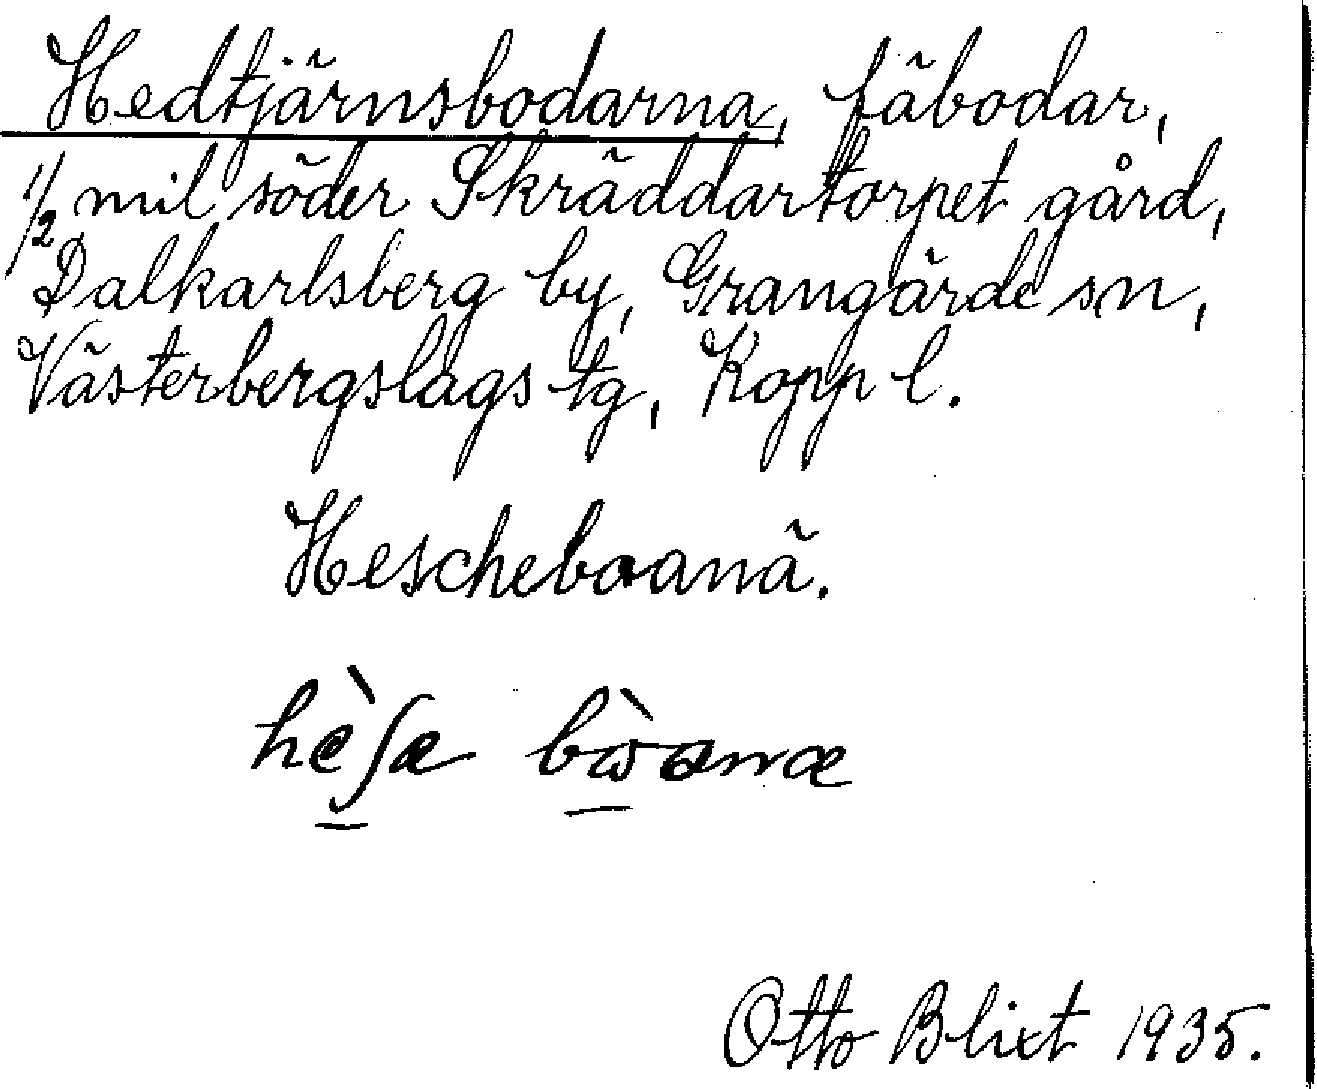 Hedtjärnsbodarna, fäbodar,
1/2 mil söder Skräddartorpet gård,
Dalkarlsberg by, Grangärde sn,
Västerbergslags tg, Kopp l.
Hescheboanä.
hèʃæ bὼanæ
Otto Blixt 1935.